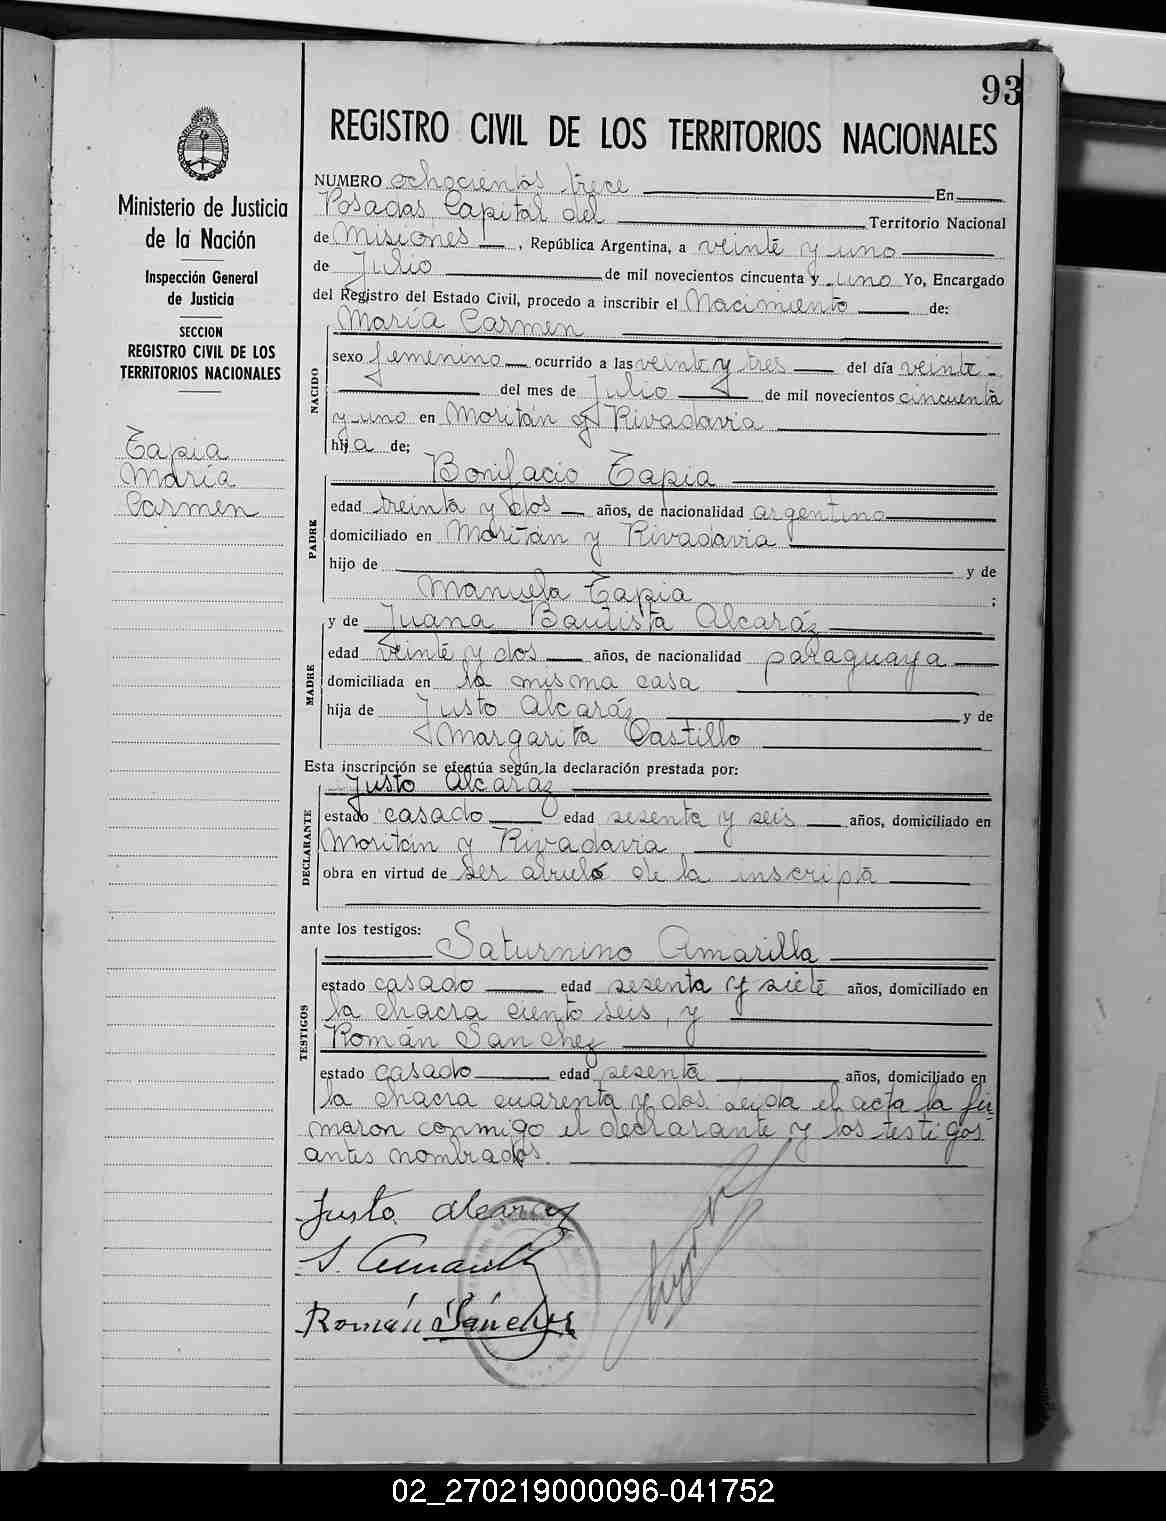 93
REGISTRO CIVIL DE LOS TERRITORIOS NACIONALES
Ministerio de Justicia
de la Nación
Inspección General
de Justicia
SECCION
REGISTRO CIVIL DE LOS
TERRITORIOS NACIONALES
Tapia
María
Carmen
NUMERO ochocientos trece En
Posadas Capital del Territorio Nacional
de Misiones, República Argentina, a veinte y uno
de Julio de mil novecientos cincuenta y uno Yo, Encargado
del Registro del Estado Civil, procedo a inscribir el Nacimiento de:
María Carmen
NACIDO
sexo femenino ocurrido a las veinte y tres del día veinte
del mes de Julio de mil novecientos cincuenta
y uno en Moritán y Rivadavia
hija de;
PADRE
Bonifacio Tapia
edad treinta y dos años, de nacionalidad argentino
domiciliado en Moritán y Rivadavia
hijo de y de
Manuela Tapia ;
MADRE
y de Juana Bautista Alcaráz
edad veinte y dos años, de nacionalidad paraguaya
domiciliada en la misma casa
hija de Justo Alcaráz y de
Margarita Castillo
Esta inscripción se efectúa según la declaración prestada por:
DECLARANTE
Justo Alcaráz
estado casado edad sesenta y seis años, domiciliado en
Moritán y Rivadavia
obra en virtud de ser abuelo de la inscripta
ante los testigos:
TESTIGOS
Saturnino Amarilla
estado casado edad sesenta y siete años, domiciliado en
la chacra ciento seis, y
Román Sanchez
estado casado edad sesenta años, domiciliado en
la chacra cuarenta y dos. Leida el acta la fir
maron conmigo el declarante y los testigos
antes nombrados.
Justo Alcaraz
S. Amarilla
Román Sánchez
02_270219000096-041752